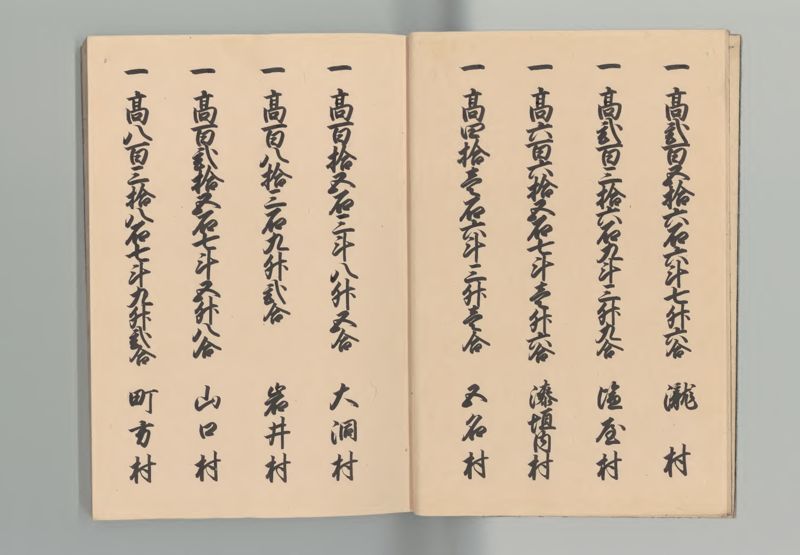 一 高貳百五拾六石六斗七升六合 瀧村
一 高貳百三拾六石九斗三升九合 塩屋村
一 高六百六拾五石七斗壱升六合 漆垣内村
一 高四拾壱石六斗三升壱合 五名村
一 高百拾五石三斗八升五合 大洞村
一 高百八拾三石九升貳合 岩井村
一 高百貳拾五石七斗五升八合 山口村
一 高八百三拾八石七斗九升貳合 町方村